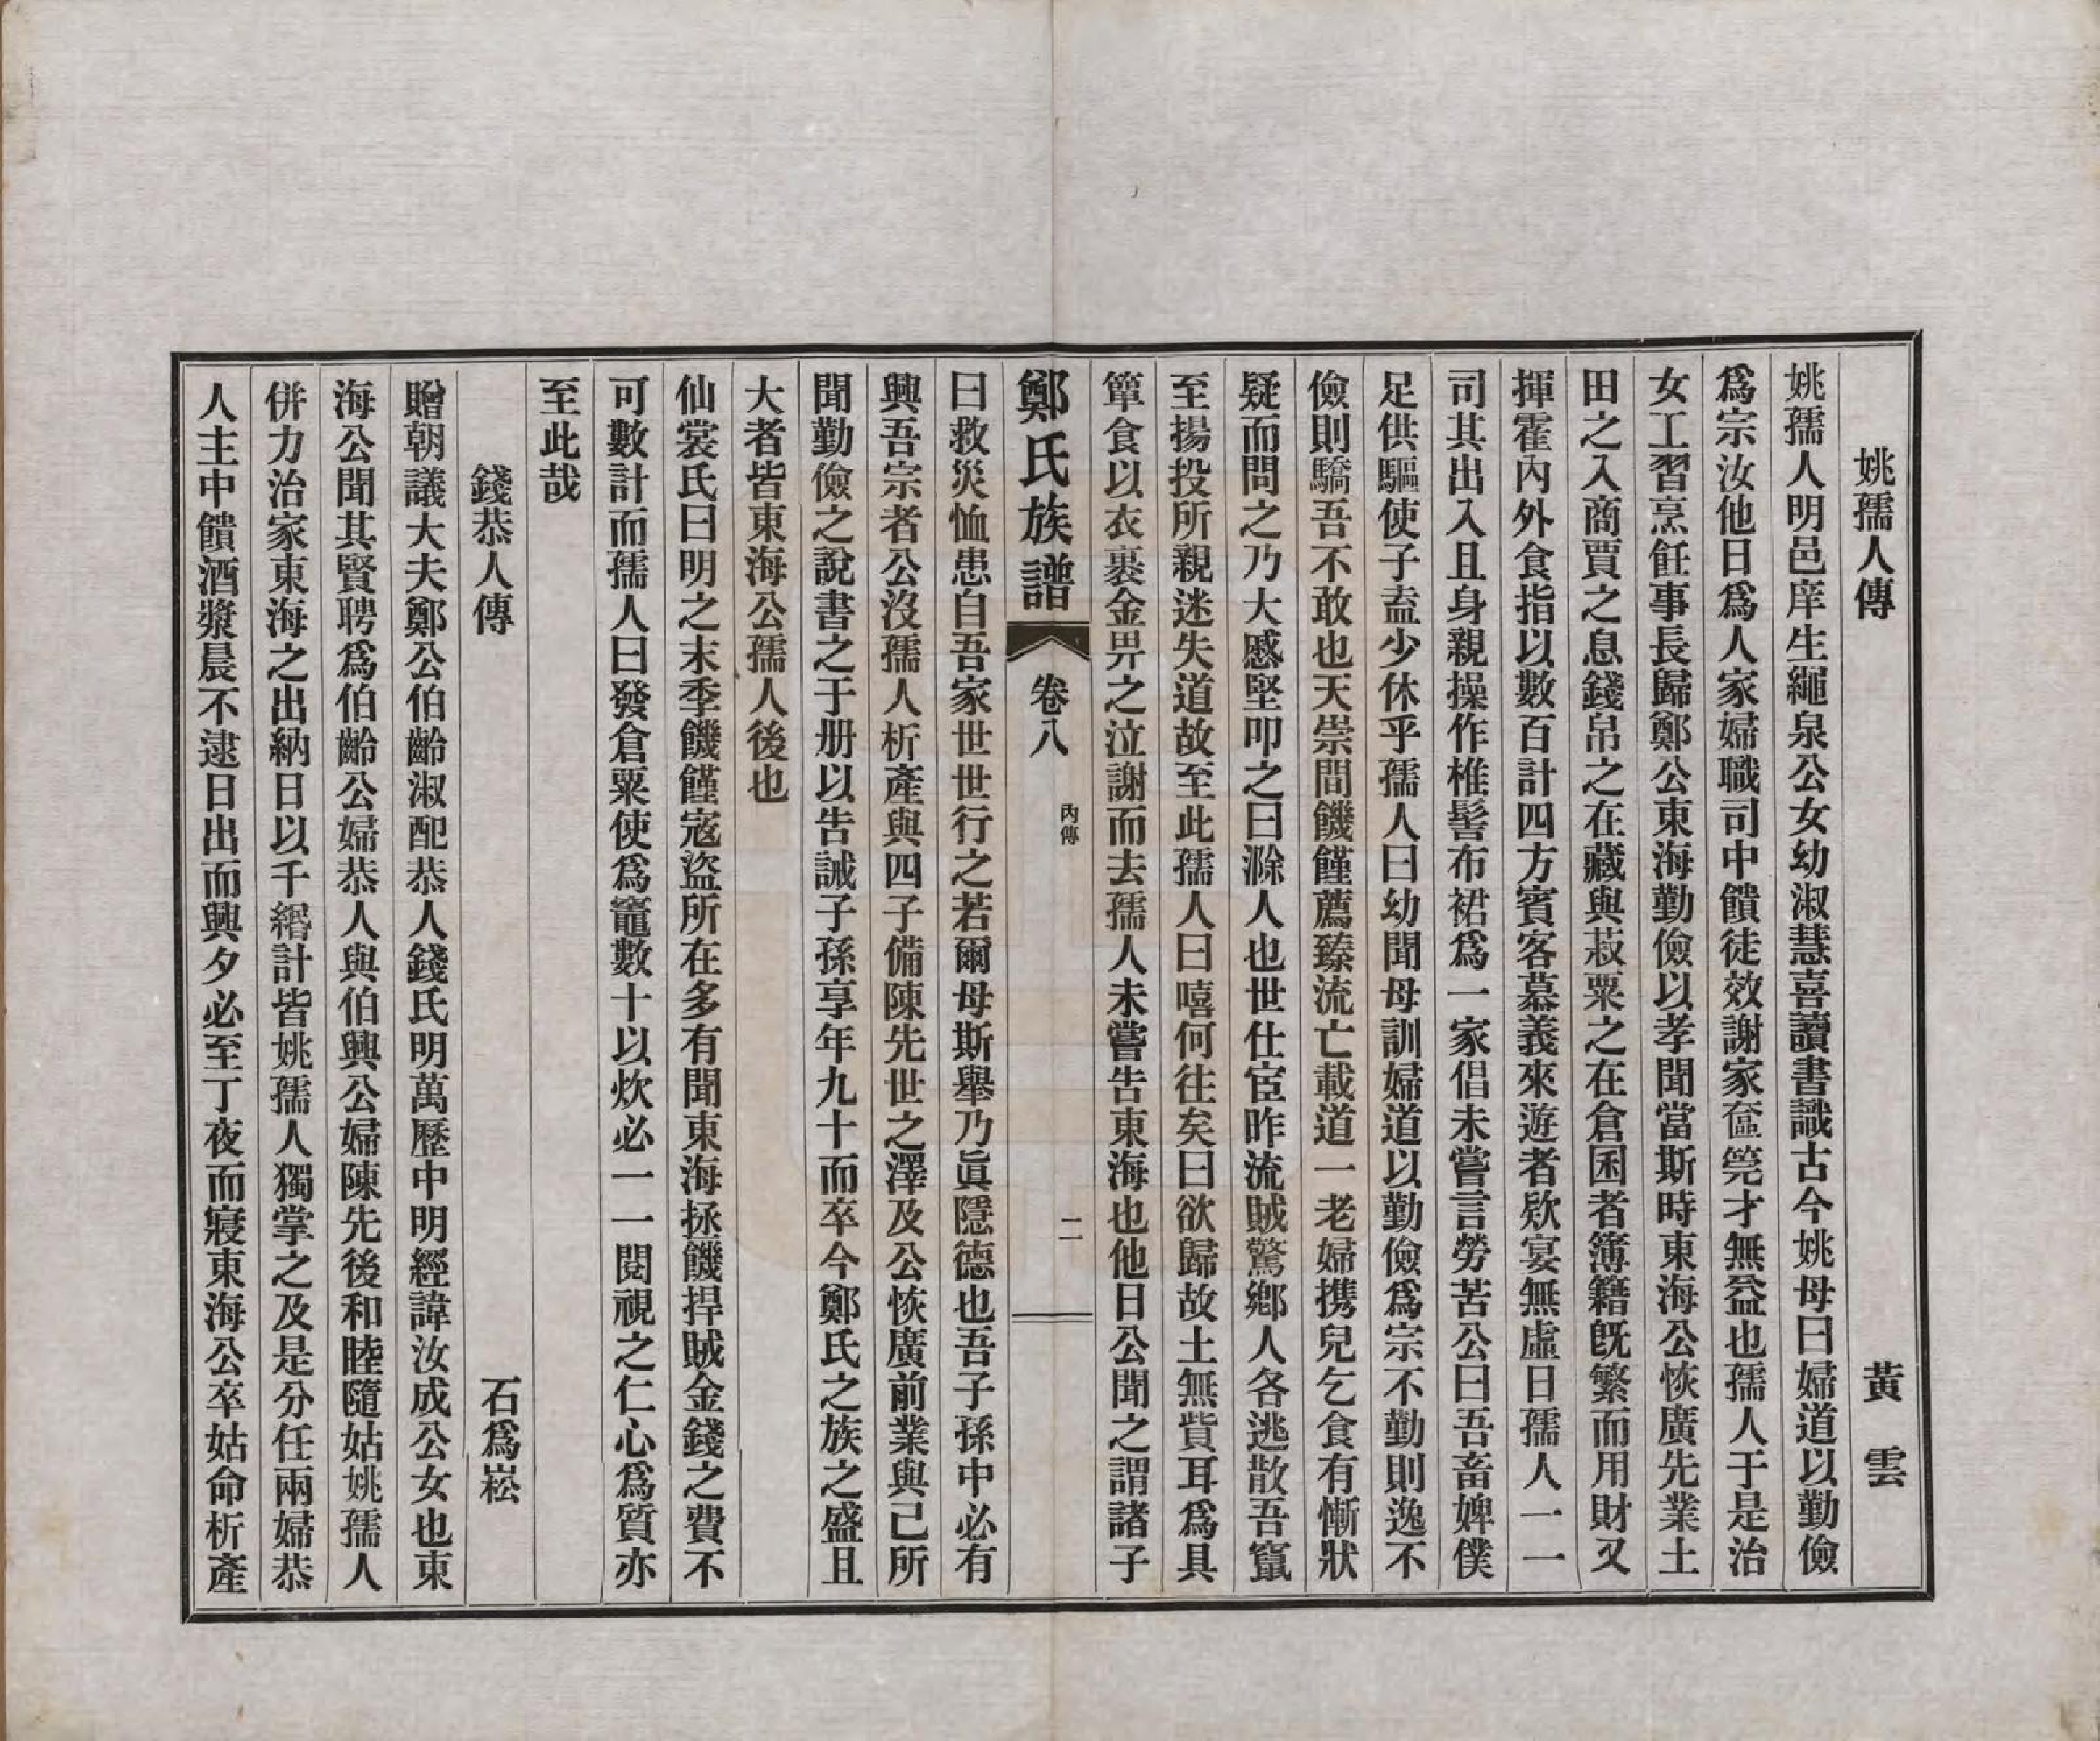 姚孺人傳　黃雲
姚孺人明邑庠生繩泉公女幼淑慧喜讀書識古今姚母曰婦道以勤儉
爲宗汝他日爲人家婦職司中饋徒效謝家奩篼才無益也孺人于是治
女工習烹飪事長歸鄭公東海勤儉以孝聞當斯時東海公恢廣先業土
田之入商賈之息錢帛之在藏與菽粟之在倉囷者簿籍旣繁而用財又
揮霍內外食指以數百計四方賓客慕義來遊者欵宴無虛日孺人一一
司其出入且身親操作椎髻布裙爲一家倡未嘗言勞苦公曰吾畜婢僕
足供驅使子盍少休乎孺人曰幼聞母訓婦道以勤儉爲宗不勤則逸不
儉則驕吾不敢也天崇間饑饉薦臻流亡載道一老婦携兒乞食有慚狀
疑而問之乃大慼堅叩之曰滁人也世仕宦昨流賊驚鄉人各逃散吾竄
至揚投所親迷失道故至此孺人曰嘻何往矣曰欲歸故土無貲耳爲具
簞食以衣裹金畀之泣謝而去孺人未嘗告東海也他日公聞之謂諸子
鄭氏族譜　卷八　內傳　二
曰救災恤患自吾家世世行之若爾母斯舉乃眞隱德也吾子孫中必有
興吾宗者公沒孺人析產與四子備陳先世之澤及公恢廣前業與己所
聞勤儉之說書之于册以告誡子孫享年九十而卒今鄭氏之族之盛且
大者皆東海公孺人後也
仙裳氏曰明之末季饑饉寇盜所在多有聞東海拯饑捍賊金錢之費不
可數計而孺人曰發倉粟使爲竈數十以炊必一一閱視之仁心爲質亦
至此哉
錢恭人傳　石爲崧
贈朝議大夫鄭公伯齡淑配恭人錢氏明萬歷中明經諱汝成公女也東
海公聞其賢聘爲伯齡公婦恭人與伯興公婦陳先後和睦隨姑姚孺人
併力治家東海之出納日以千緡計皆姚孺人獨掌之及是分任兩婦恭
人主中饋酒漿晨不逮日出而興夕必至丁夜而寢東海公卒姑命析產